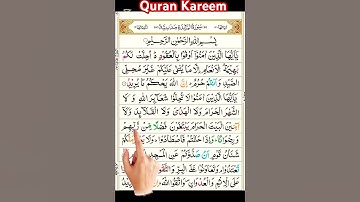 Quran Kareem
بِسْمِ اللّٰهِ الرَّحْمٰنِ الرَّحِيْمِ
يٰۤاَيُّهَا الَّذِيْنَ اٰمَنُوْۤا اَوْفُوْا بِالْعُقُوْدِ اُحِلَّتْ لَكُمْ
بَهِيْمَةُ الْاَنْعَامِ اِلَّا مَا يُتْلٰى عَلَيْكُمْ غَيْرَ مُحِلِّى
الصَّيْدِ وَاَنْتُمْ حُرُمٌ اِنَّ اللّٰهَ يَحْكُمُ مَا يُرِيْدُ
يٰۤاَيُّهَا الَّذِيْنَ اٰمَنُوْا لَا تُحِلُّوْا شَعَآئِرَ اللّٰهِ وَلَا
الشَّهْرَ الْحَرَامَ وَلَا الْهَدْىَ وَلَا الْقَلَآئِدَ وَلَاۤ
آٰمِّيْنَ الْبَيْتَ الْحَرَامَ يَبْتَغُوْنَ فَضْلًا مِّنْ رَّبِّهِمْ
وَرِضْوَانًا وَاِذَا حَلَلْتُمْ فَاصْطَادُوْا وَلَا يَجْرِمَنَّكُمْ
شَنَاٰنُ قَوْمٍ اَنْ صَدُّوْكُمْ عَنِ الْمَسْجِدِ
تَعْتَدُوْا وَتَعَاوَنُوْا عَلَى الْبِرِّ وَالتَّقْوٰى
عَلَى الْاِثْمِ وَالْعُدْوَانِ وَاتَّقُوا اللّٰهَ